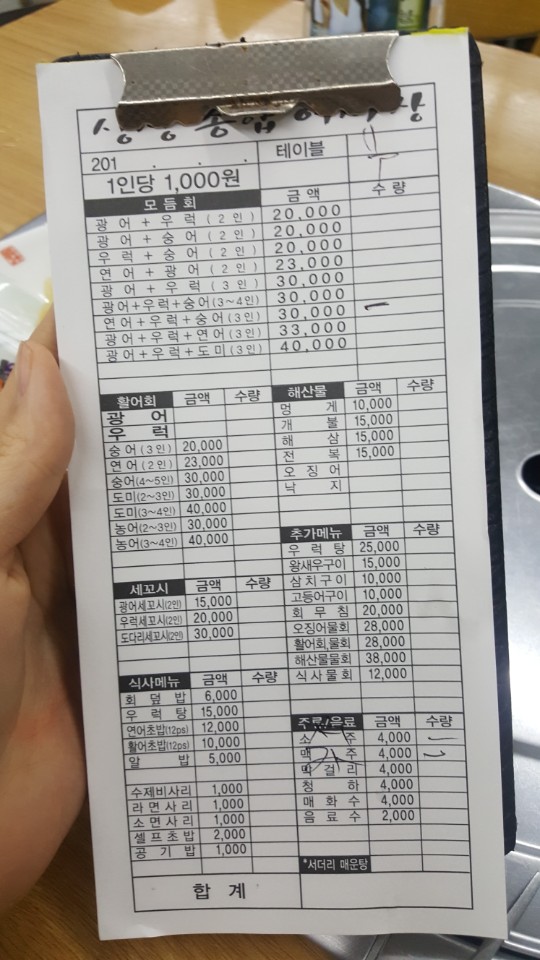 201 . . . 테이블
1인당 1,000원
모듬회 금액 수량
광어+우럭(2인) 20,000
광어+숭어(2인) 20,000
우럭+숭어(2인) 20,000
연어+광어(2인) 23,000
광어+우럭(3인) 30,000
광어+우럭+숭어(3~4인) 30,000
연어+우럭+숭어(3인) 30,000
광어+우럭+연어(3인) 33,000
광어+우럭+도미(3인) 40,000
활어회 금액 수량
광어
우럭
숭어(3인) 20,000
연어(2인) 23,000
숭어(4~5인) 30,000
도미(2~3인) 30,000
도미(3~4인) 40,000
농어(2~3인) 30,000
농어(3~4인) 40,000
세꼬시 금액 수량
광어세꼬시(2인) 15,000
우럭세꼬시(2인) 20,000
도다리세꼬시(2인) 30,000
식사메뉴 금액 수량
회덮밥 6,000
우럭탕 15,000
연어초밥(12ps) 12,000
활어초밥(12ps) 10,000
알밥 5,000
수제비사리 1,000
라면사리 1,000
소면사리 1,000
셀프초밥 2,000
공기밥 1,000
해산물 금액 수량
멍게 10,000
개불 15,000
해삼 15,000
전복 15,000
오징어
낙지
추가메뉴 금액 수량
우럭탕 25,000
왕새우구이 15,000
삼치구이 10,000
고등어구이 10,000
회무침 20,000
오징어물회 28,000
활어회,물회 28,000
해산물물회 38,000
식사물회 12,000
주류/음료 금액 수량
소주 4,000
맥주 4,000
막걸리 4,000
청하 4,000
매화수 4,000
음료수 2,000
*서더리 매운탕
합계